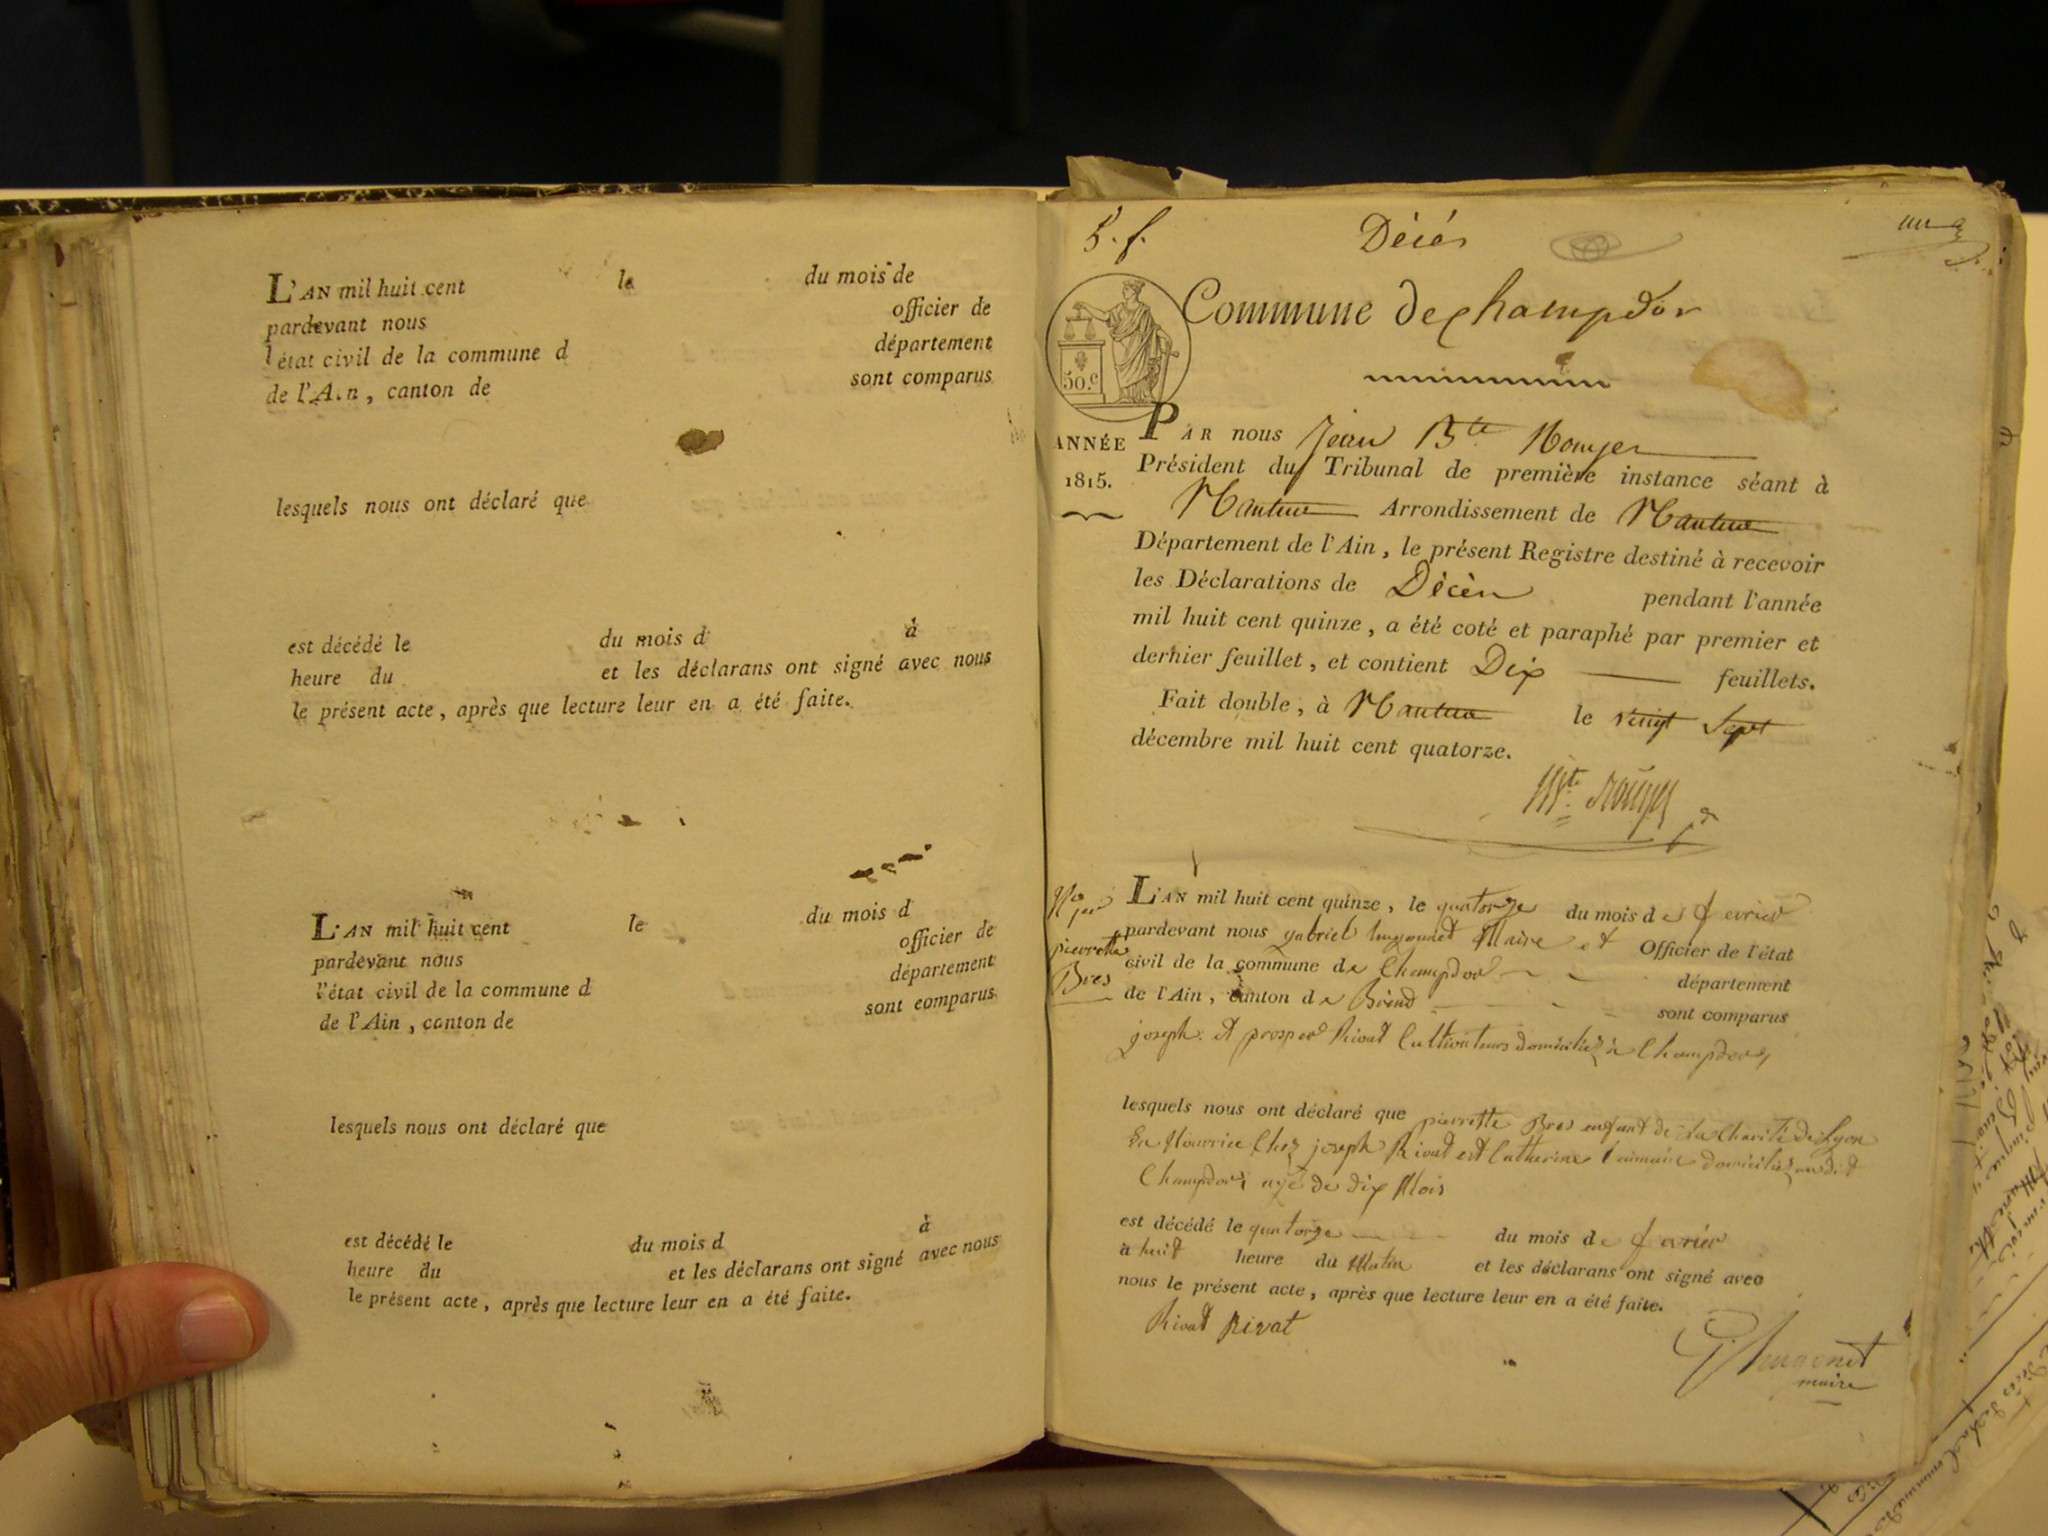 L'AN mil huit cent le du mois de
pardevant nous officier de
l'état civil de la commune d département
de l'Ain, canton de sont comparus
lesquels nous ont déclaré que
est décédé le du mois d à
heure du et les déclarans ont signé avec nous
le présent acte, après que lecture leur en a été faite.
L'AN mil huit cent le du mois d
pardevant nous officier de
l'état civil de la commune d département
de l'Ain, canton de sont comparus
lesquels nous ont déclaré que
est décédé le du mois d à
heure du et les déclarans ont signé avec nous
le présent acte, après que lecture leur en a été faite.
5. f. Décés un
Commune de Champdor
50.c
ANNÉE
1815.
PAR nous Jean Bte Rouyer
Président du Tribunal de première instance séant à
Nantua Arrondissement de Nantua
Département de l'Ain, le présent Registre destiné à recevoir
les Déclarations de Décès pendant l'année
mil huit cent quinze, a été coté et paraphé par premier et
dernier feuillet, et contient Dix feuillets.
Fait double, à Nantua le vingt Sept
décembre mil huit cent quatorze.
Bte Rouyer
No 1er
pierrette
Bres
L'AN mil huit cent quinze, le quatorze du mois de fevrier
pardevant nous gabriel hugonnet Maire et Officier de l'état
civil de la commune de Champdor département
de l'Ain, canton de Brénod sont comparus
joseph et prosper Rivat Cultivateurs domiciliez à Champdor,
lesquels nous ont déclaré que pierrette Bres enfant de la Charité de Lyon
En Nourrice Chez joseph Rivat et Catherine domiciliez audit
Champdor, agé de dix Mois
est décédé le quatorze du mois de fevrier
à huit heure du Matin et les déclarans ont signé avec
nous le présent acte, après que lecture leur en a été faite.
Rivat Rivat
G hugonet
maire